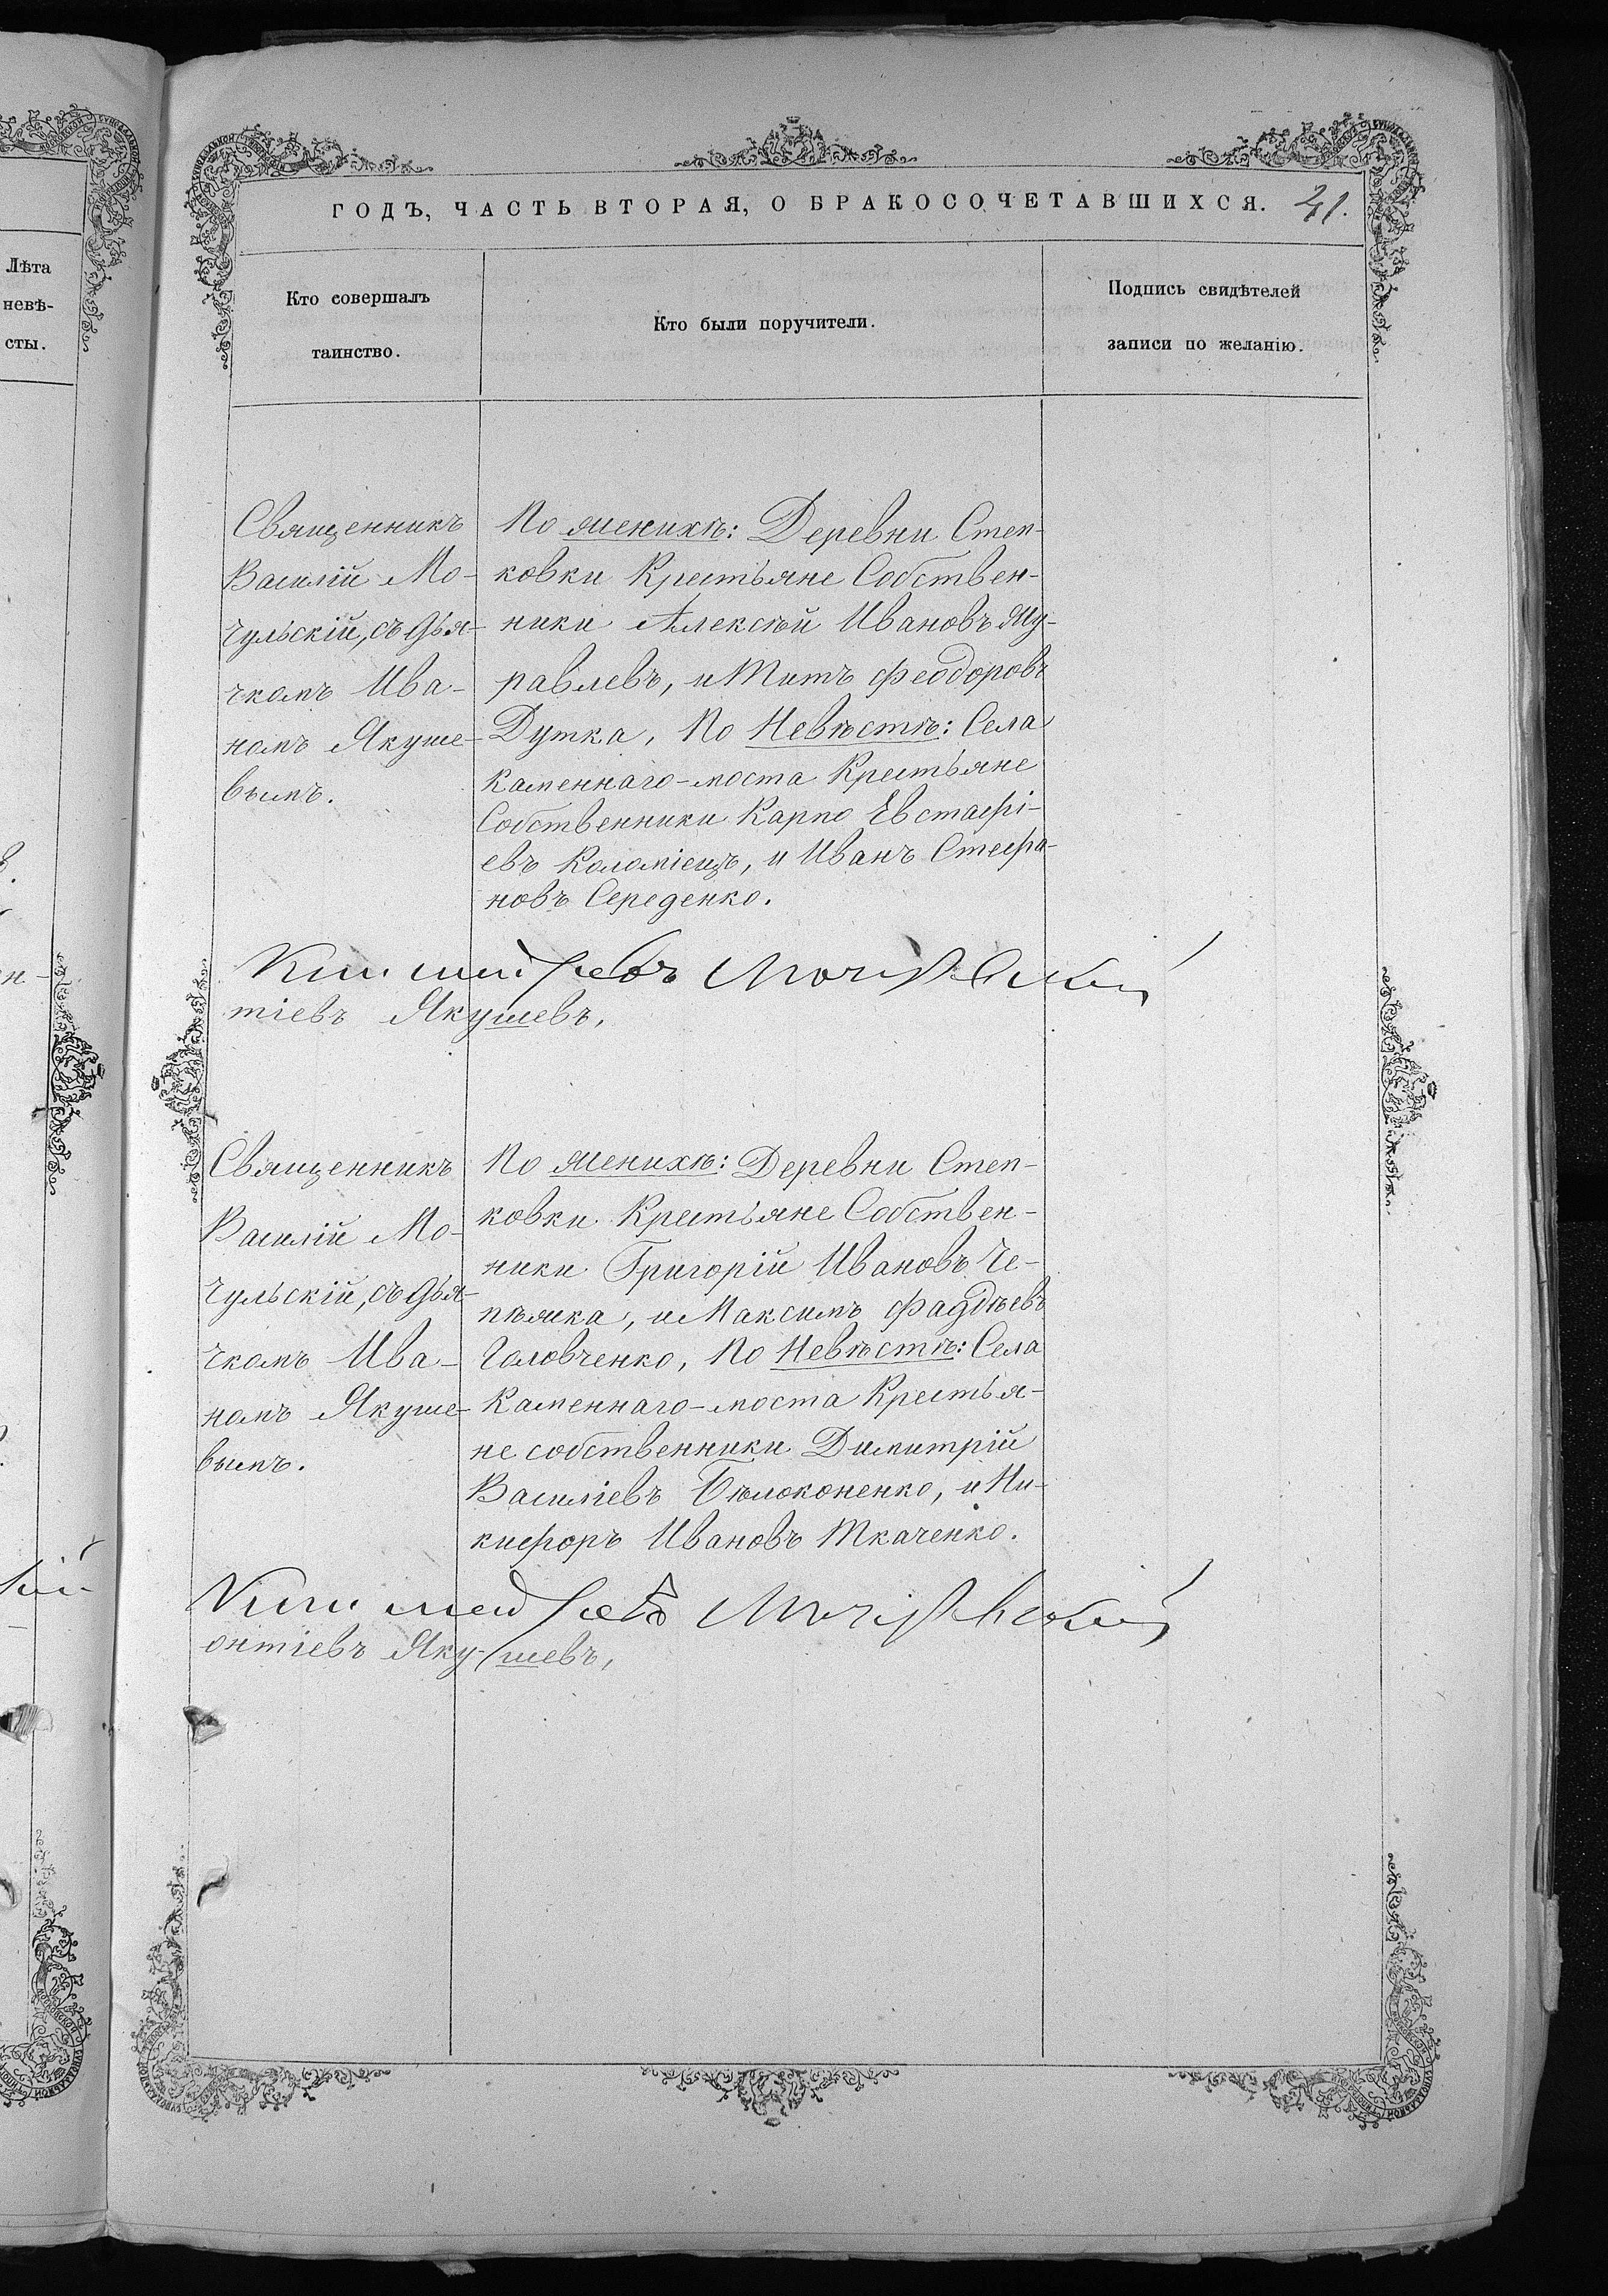 ГОДЪ, ЧАСТЬ ВТОРАЯ, О БРАКОСОЧЕТАВШИХСЯ. 41.
Лѣта
невѣ-
сты.
Кто совершалъ
таинство.
Кто были поручители.
Подпись свидѣтелей
записи по желанію.
Священникъ
Василій Мо-
чульскій, съ дья-
чкомъ Ива-
номъ Якуше-
вымъ.
По женихѣ: Деревни Степ-
ковки Крестьяне Собствен-
ники Алексѣй Ивановъ Жу-
равлевъ, и Титъ Феодоровъ
Дутка, По Невѣстѣ: Села
Каменнаго-моста Крестьяне
Собственники Карпо Евстафі-
евъ Коломіецъ, и Иванъ Стефа-
новъ Середенко.
Мочульскій
тіевъ Якушевъ,
Священникъ
Василій Мо-
чульскій, съ дья-
чкомъ Ива-
номъ Якуше-
вымъ.
По женихѣ: Деревни Степ-
ковки Крестьяне Собствен-
ники Григорій Ивановъ Че-
пѣжка, и Максимъ Фадѣевъ
Головченко, По Невѣстѣ: Села
Каменнаго-моста Крестья-
не собственники Димитрій
Василіевъ Бѣлоконенко, и Ни-
кифоръ Ивановъ Ткаченко.
Мочульскій
онтіевъ Яку-шевъ,